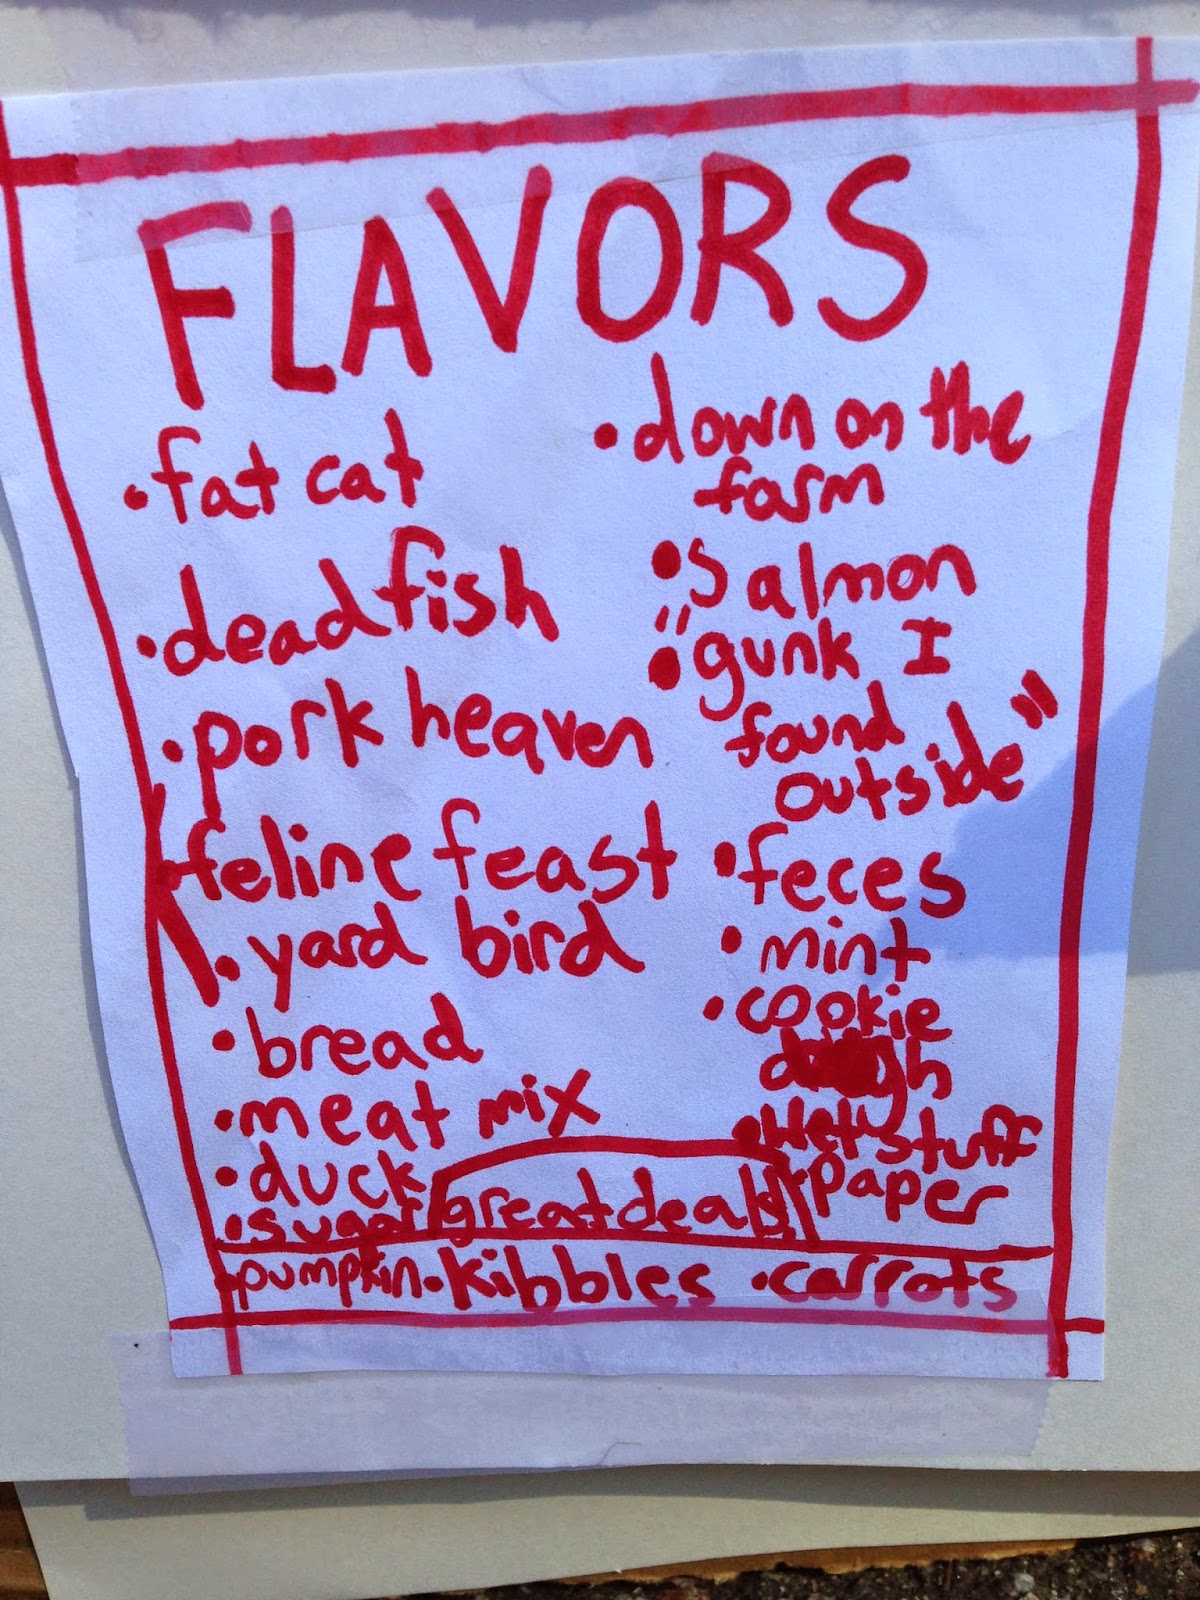 FLAVORS
• fat cat
• dead fish
• pork heaven
• feline feast
• yard bird
• bread
• meat mix
• duck
• sugar
• down on the
farm
• salmon
• "gunk I
found
outside"
• feces
• mint
• cookie
dough
• stuff
paper
great deals
• pumpkin • kibbles • carrots